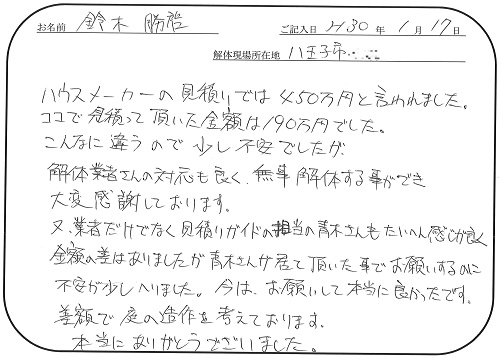 お名前 鈴木 勝 ご記入日 H30 年 1 月 17 日
解体現場所在地 八王子市
ハウスメーカーの見積りでは450万円と言われました。
ココで見積って頂いた金額は190万円でした。
こんなに違うので少し不安でしたが、
解体業者さんの対応も良く、無事解体する事ができ
大変感謝しております。
又、業者だけでなく見積りガイドの担当の青木さんもたいへん感じが良く
金額の差はありましたが青木さんが居て頂いた事でお願いするのに
不安が少しへりました。今は、お願いして本当に良かったです。
差額で庭の造作を考えております。
本当にありがとうございました。